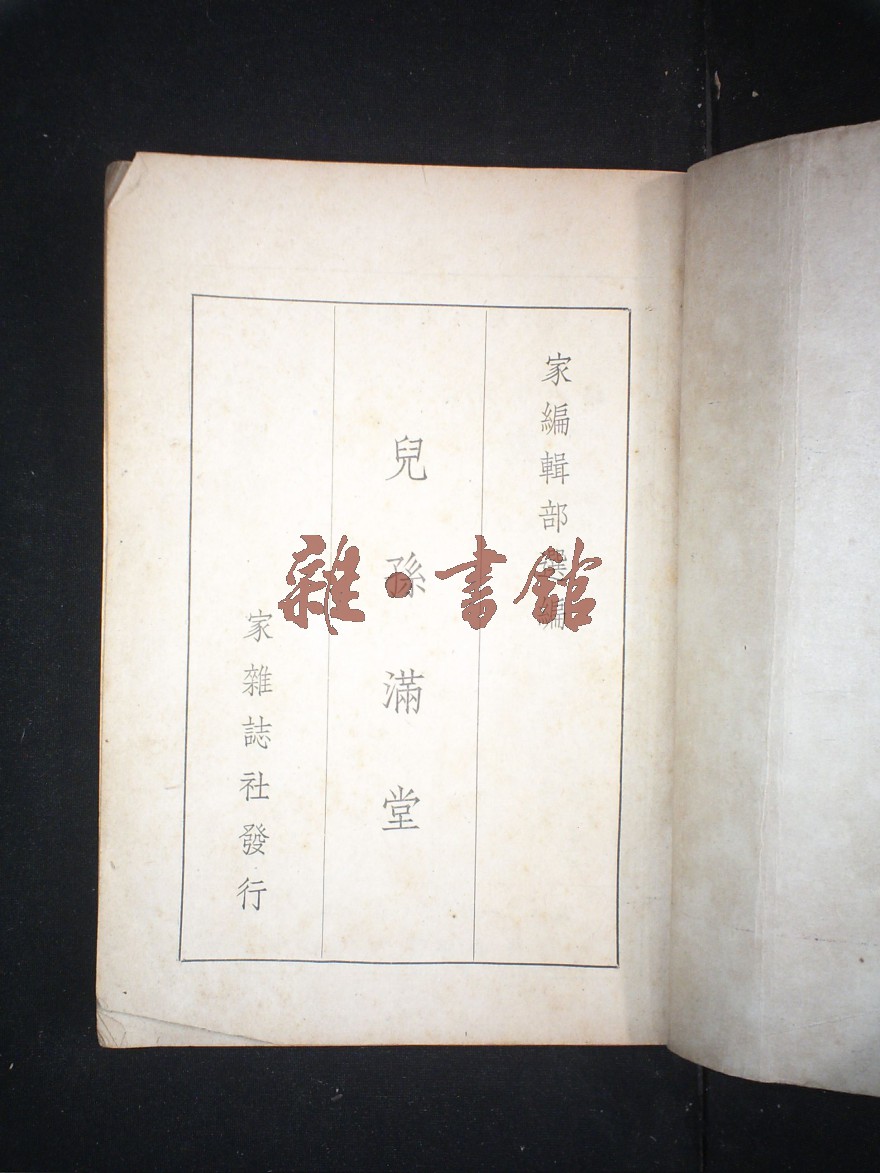 家編輯部選編
兒孫滿堂
家雜誌社發行
雜·書館